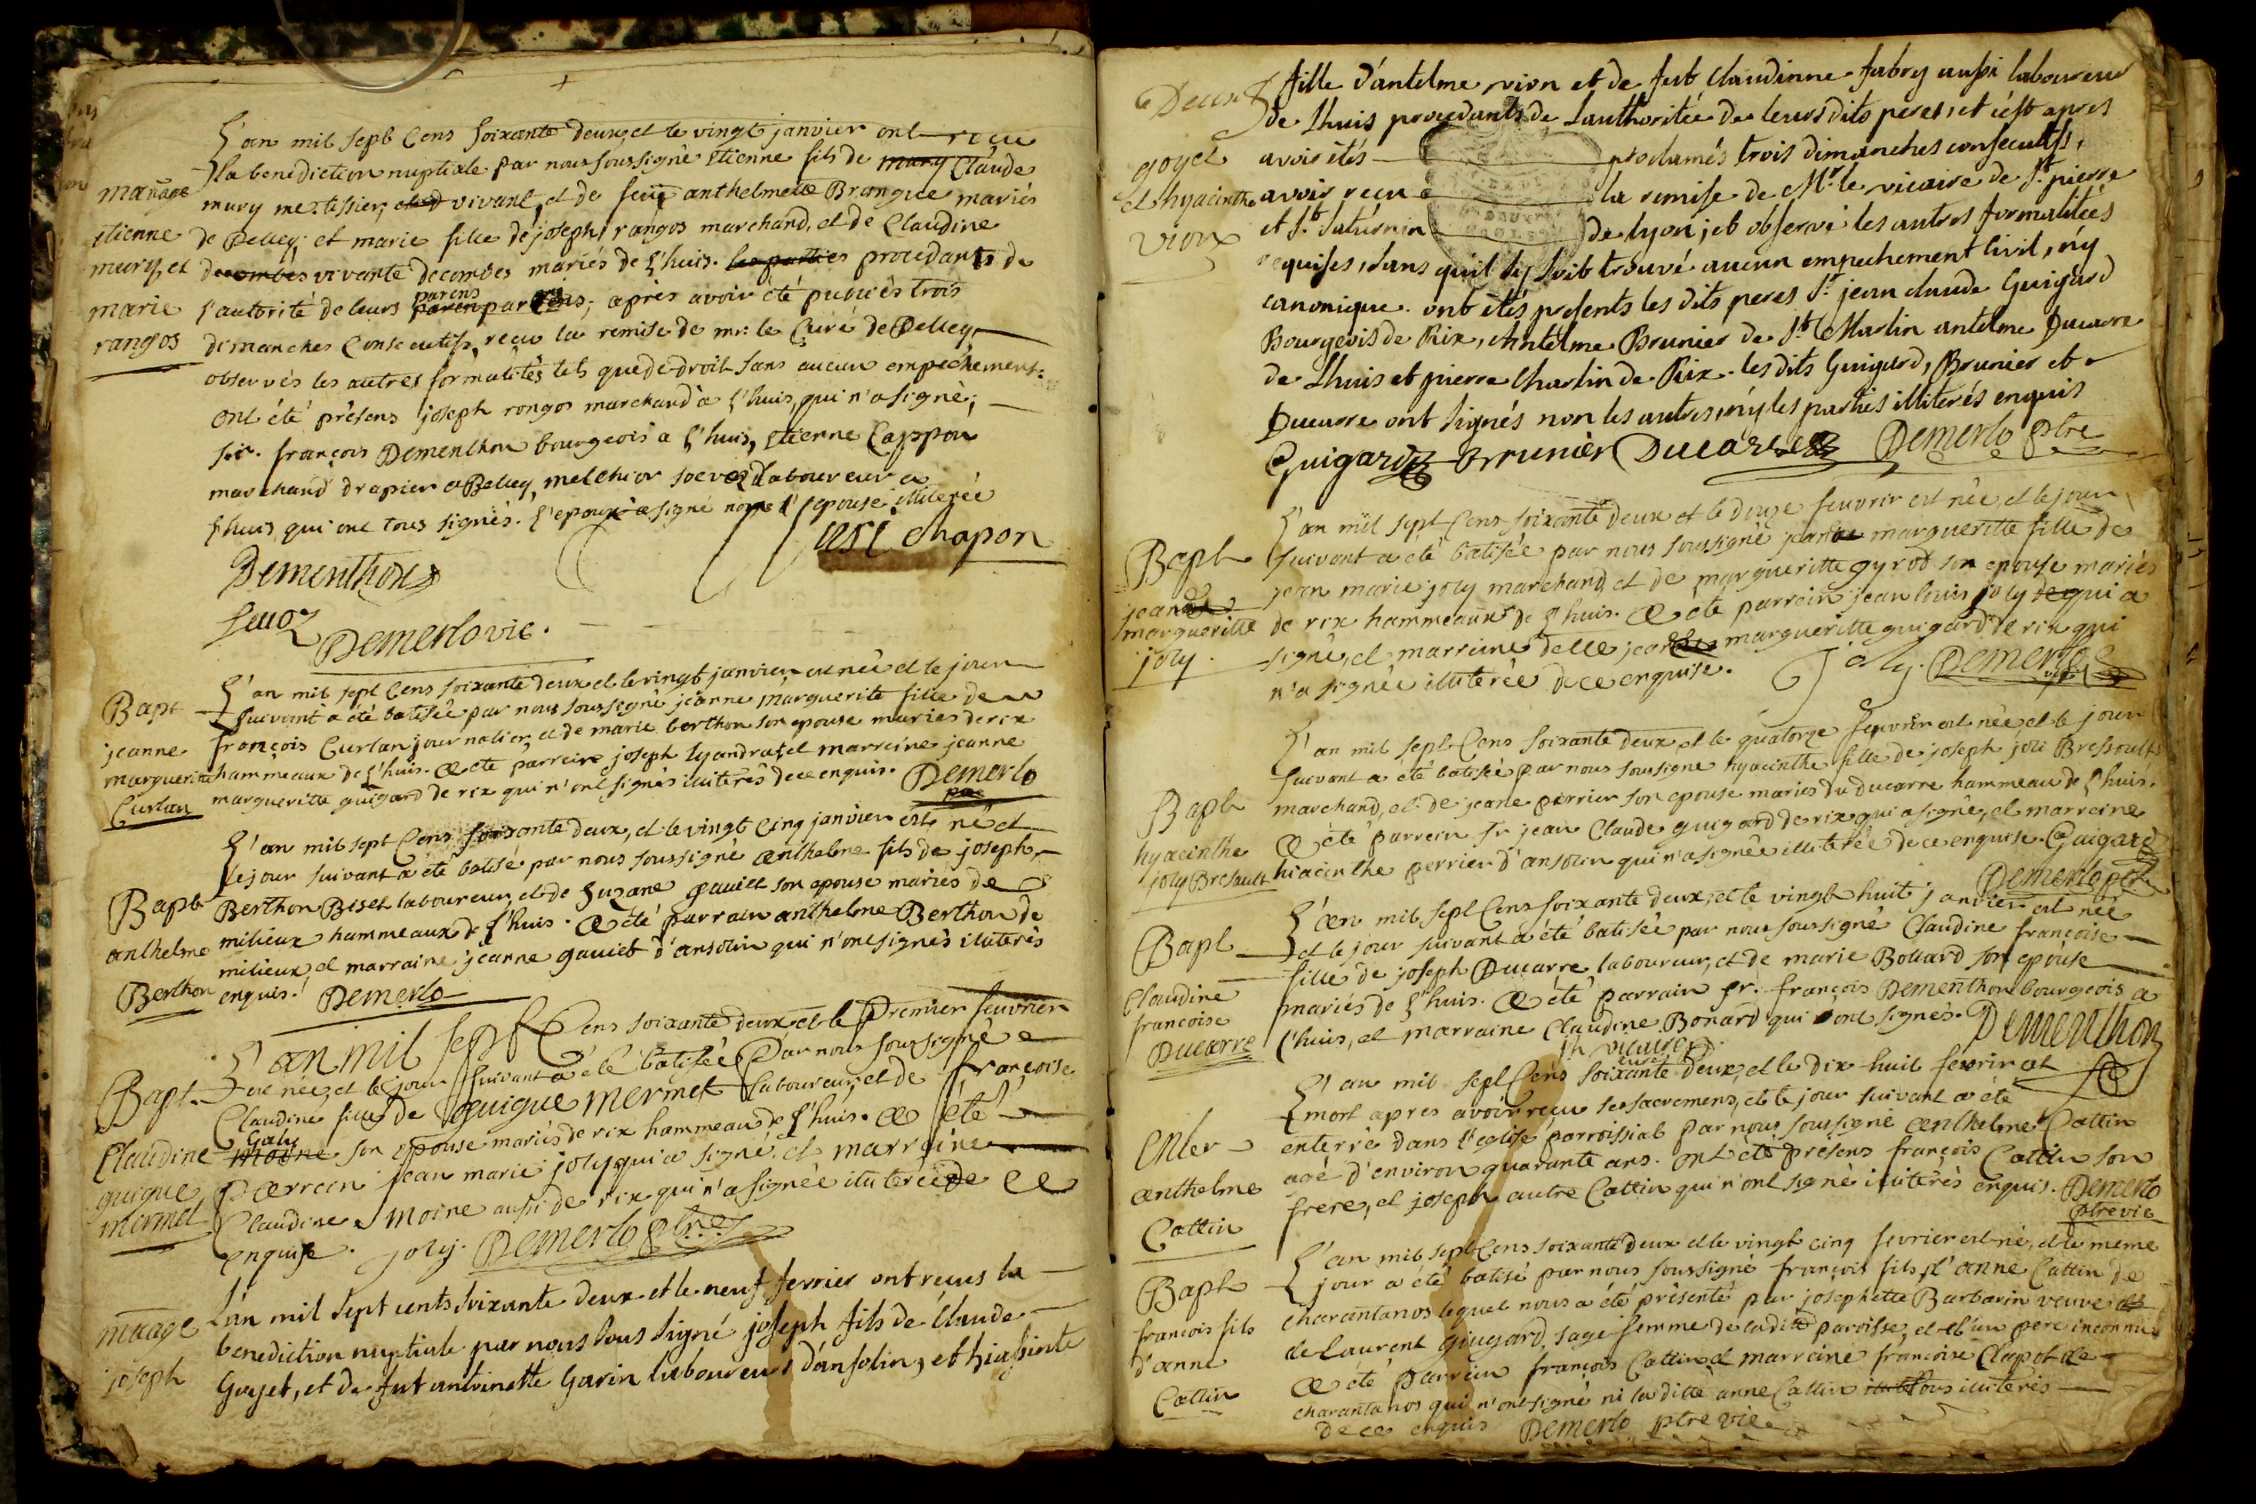 L'an mil sept Cens soixante deux, et le vingt janvier ont reçu
la benediction nuptiale par nous soussigné Etienne fils de mury Claude
mury me. tessier, vivant, et de feüe anthelmette Brangue mariés
de Belley; et marie fille de joseph rangos marchand, et de Claudine
decombes vivante decombes mariés de l'huis. les parties procedants de
l'autorité de leurs parens; après avoir été publiés trois
dimanches Consecutifs, reçu la remise de mr: le Curé de Belley,
observés les autres formalités tels que de droit sans aucun empechement:
ont été présens joseph rongos marchand à l'huis, qui n'a signé;
sir. françois Dementhon bourgeois a l'huis, Etienne Cappon
marchand drapier a Belley, melchior soevoz laboureur a
l'huis, qui ont tous signés. l'epoux a signé non l'epouse illiterée
mariage
etienne
mury, et
marie
rangos
Dementhon
chapon
sevoz
Demerlo vic.
L'an mil sept Cens soixante deux et le vingt janvier est née et le jour
suivant a été batisée par nous soussigné jeanne marguerite fille de
françois Curlan journalier, et de marie berthon son epouse mariés de rix
hammeaux de l'huis. a été parrein joseph lyandrat, et marreine jeanne
margueritte guigard de rix qui n'ont signés illiterés de ce enquis. Demerlo
Bapt
jeanne
marguerite
Curlan
L'an mil sept Cens soixante deux, et le vingt Cinq janvier est né et
le jour suivant a été batisé par nous soussigné anthelme fils de joseph
Berthon Biset laboureur, et de Suzane gauiet son epouse mariés de
milieux hammeaux de l'huis. a été parrain anthelme Berthon de
milieux, et marraine jeanne gauiet d'ansolin qui n'ont signés illiterés
enquis. Demerlo
Bapt
anthelme
Berthon
L'an mil sept Cens soixante deux et le Premier feuvrier
est née, et le jour suivant a été batisée Par nous soussigné
Claudine fille de guigue mermet laboureur, et de françoise
moine son epouse mariés de rix hammeau de l'huis. a été
Parrein jean marie joly qui a signé et marraine
Claudine moine aussi de rix qui n'a signée illiterée de ce
enquise. joly. Demerlo ptre
Bapt.
Claudine
guigue
mermet
L'an mil sept cents soixante deux et le neuf ferrier ont reçus la
benediction nuptiale par nous sous signé joseph fils de Claude
Goyet, et de fut antoinette Garin laboureurs d'ansolin, et hiasinte
mariage
joseph
fille d'antelme vion et de fut Claudinne fabry aussi laboureur
de Lhuis procedants de Lauthoritée de leurs dits peres, et c'est apres
avoir étés proclamés trois dimanches consecutifs,
avoir reçu la remise de Mr. le vicaire de St. pierre
et St. Saturnin de lyon, et observé les autres formalitées
requises, sans quil sy soit trouvé aucun empechement Civil, n'y
canonique. ont étés presents les dits peres Sr. jean claude Guigard
Bourgeois de Rix, Antelme Brunier de St. Martin antelme Ducarre
de Lhuis et pierre Charlin de Rix. les dits Guigard, Brunier et
Ducarre ont signés non les autres, n'y les parties illiterés enquis
Guigard Brunier Ducarre Demerlo ptre
goyet
et hyacinthe
vion
L'an mil sept Cens soixante deux et le douze feuvrir est née, et le jour
suivant a été batisée par nous soussigné jeanne margueritte fille de
jean marie joly marchand, et de margueritte gyrod son epouse mariés
de rix hammeaux de l'huis. a été parrein jean louis joly qui a
signé, et marreine delle margueritte guigard de rix qui
n'a signée illiterée de ce enquise. joly. Demerlo
Bapt
margueritte
joly
L'an mil sept Cens soixante deux et le quatorze feuvrir est née et le jour
suivant a été batisée par nous soussigné hyacinthe fille de joseph joli Bressoult
marchand, et de jeane perrier son epouse mariés du Ducarre hammeau de l'huis.
a été parrein Sr jean Claude guigard de rix qui a signé, et marreine
hiacinthe perrier d'ansolin qui n'a signée illiterée de ce enquise. Guigard
Demerlo ptre
Bapt
hyacinthe
joly Bresault
L'an mil sept Cens soixante deux, et le vingt huit janvier est née
et le jour suivant a été batisée par nous soussigné Claudine françoise
fille de joseph Ducarre laboureur, et de marie Bonard son epouse
mariés de l'huis. a été parrain sr. françois Dementhon bourgeois a
l'huis, et marraine Claudine Bonard qui ont signés. Dementhon
Bapt
Claudine
francoise
Ducarre
L'an mil sept Cens soixante deux, et le dix huit fevrir est
mort apres avoir reçu ses sacremens, et le jour suivant a été
enterré dans l'eglise parroissial par nous soussigné anthelme Cattin
agé d'environ quarante ans. ont été présens françois Cattin son
frere, et joseph autre Cattin qui n'ont signé illiterés enquis. Demerlo
ptre vic
Enter
anthelme
Cattin
L'an mil sept Cens soixante deux et le vingt cinq fevrier est né, et le meme
jour a été batisé par nous soussigné françois fils d'anne Cattin de
charantanos lequel nous a été présenté par josephette Barbarin veuve
de Laurent guigard, sage femme de ladite paroisse, et d'un pere inconnu
a été parrein françois Cattin et marreine francoise Clapot de
charantanos qui n'ont signé ni la ditte anne Cattin tous illiterés
de ce enquis Demerlo ptre vic
Bapt
francois fils
d'anne
Cattin